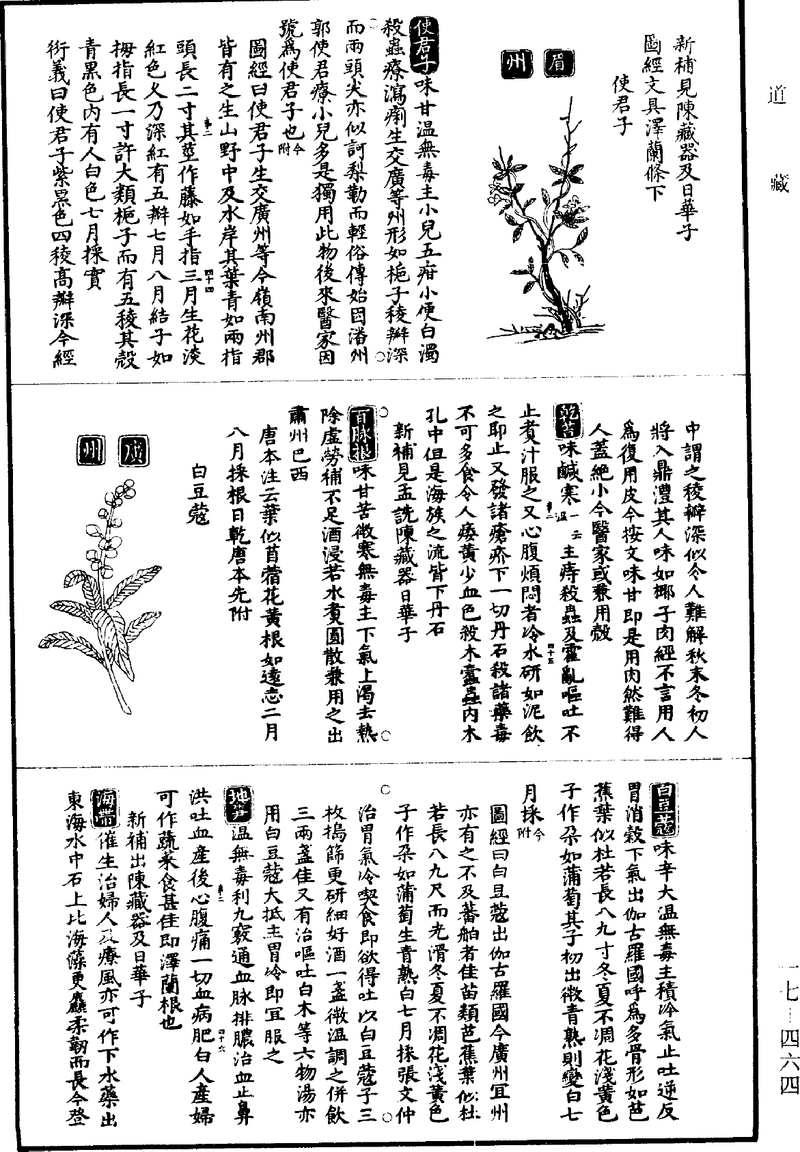 道藏
新補見陳藏器及日華子
圖經文具澤蘭條下
使君子
眉州
使君子味甘温無毒主小兒五疳小便白濁
殺蟲療瀉痢生交廣等州形如梔子稜瓣深
而兩頭尖亦似訶梨勒而輕俗傳始因潘州
郭使君療小兒多是獨用此物後來醫家因
號為使君子也今附
圖經曰使君子生交廣州等今嶺南州郡
皆有之生山野中及水岸其葉青如兩指
頭長二寸其莖作藤如手指三月生花淡
紅色久乃深紅有五瓣七月八月結子如
拇指長一寸許大類梔子而有五稜其殼
青黑色內有人白色七月採實
衍義曰使君子紫黑色四稜高瓣深今經
中謂之稜瓣深似令人難解秋末冬初人
將入鼎澧其人味如椰子肉經不言用人
為復用皮今按文味甘即是用肉然難得
人蓋絕小今醫家或兼用殼
乾苔味鹹寒一云温主痔殺蟲及霍亂嘔吐不
止煮汁服之又心腹煩悶者冷水研如泥飲
之即止又發諸瘡疥下一切丹石殺諸藥毒
不可多食令人痿黃少血色殺木蠹蟲內木
孔中但是海族之流皆下丹石
新補見孟詵陳藏器日華子
百脉根味甘苦微寒無毒主下氣止渴去熱
除虛勞補不足酒浸若水煮圓散兼用之出
肅州巴西
唐本注云葉似苜蓿花黃根如遠志二月
八月採根日乾唐本先附
白豆蔻
廣州
白豆蔻味辛大温無毒主積冷氣止吐逆反
胃消穀下氣出伽古羅國呼為多骨形如芭
蕉葉似杜若長八九寸冬夏不凋花淺黃色
子作朵如蒲萄其子初出微青熟則變白七
月採今附
圖經曰白豆蔻出伽古羅國今廣州宜州
亦有之不及蕃舶者佳苗類芭蕉葉似杜
若長八九尺而光滑冬夏不凋花淺黃色
子作朵如蒲萄生青熟白七月採張文仲
治胃氣冷喫食即欲得吐以白豆蔻子三
枚搗篩更研細好酒一盞微温調之併飲
三兩盞佳又有治嘔吐白朮等六物湯亦
用白豆蔻大抵主胃冷即宜服之
地笋温無毒利九竅通血脉排膿治血止鼻
洪吐血產後心腹痛一切血病肥白人產婦
可作蔬菜食甚佳即澤蘭根也
新補出陳藏器及日華子
海帶催生治婦人及療風亦可作下水藥出
東海水中石上比海藻更麤柔韌而長今登
一七—四六四